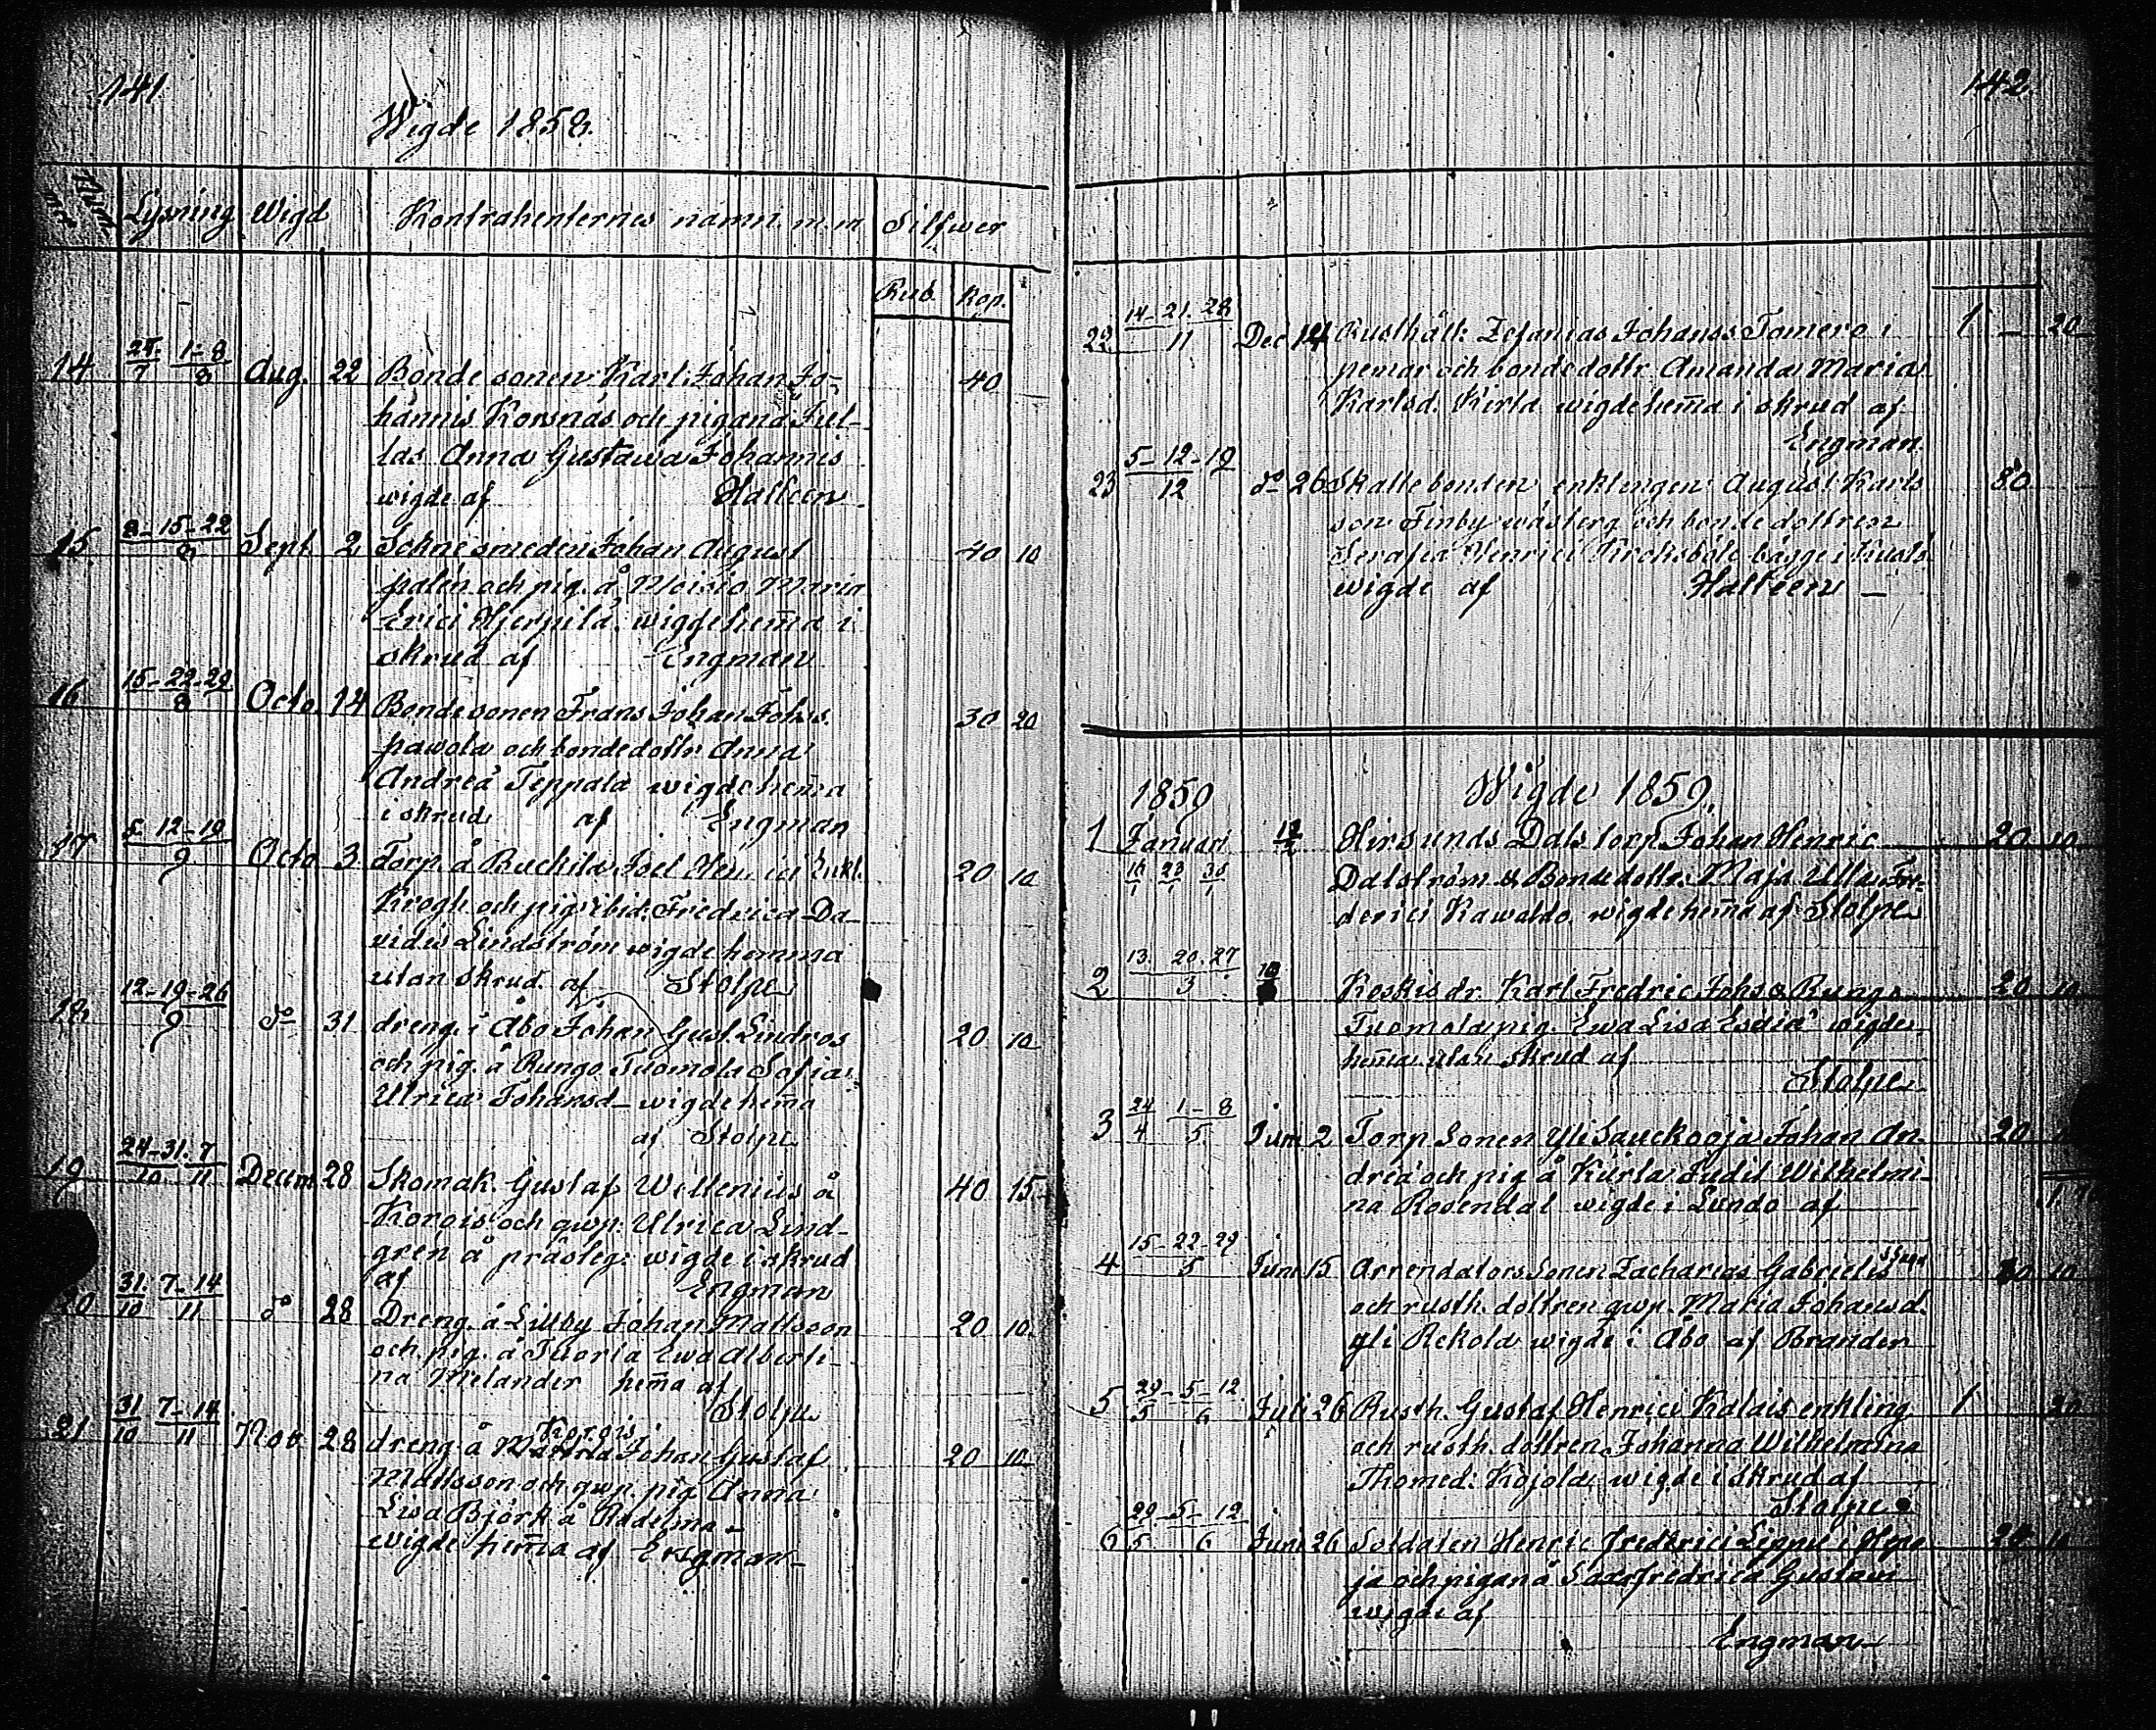 141
Wigde 1858.
Num mer Lysning Wigd Kontrahenternes namn m.m Silfwer
Rub. Kop.
14 25/7 1-8/8 Aug. 22 Bonde sonen Karl Johan Jo- 40
hannis Korsnäs och pigan å
las Anna Gustawa Johannis
wigde af Halleen
15 8-15-22/8 Sept 2 Johan August 40 10
palén och pig. å Moisio Maria
Erici Hjerpilä wigde hem̄a i
skrud af Engman
16 15-22-29/8 Octo. 14 Bonde sonen Frans Johan Johs. 30 20
pawola och bondedottr. Anna
Andreä Teppala wigde hem̄a
i skrud af Engman
17 5-12-19/9 Octo 3 Torp. å Joel Henrici Enkl. 20 10
Krogh och pig. ibid. Fredrica Da-
vidis Lindström wigde hemma
utan skrud af Stolpe
18 12-19-26/9 do 31 dreng. i Åbo Johan Gust. Lindros 20 10
och pig. å Rungo Tuomola Sofia
Ulrica Johansd- wigde hem̄a
af Stolpe
19 24-31/10 7/11 Decem 28 Skomak. Gustaf Willenius å 40 15
Korois och qwp. Ulrica Lind-
grén å prästeg: wigde i skrud
af Engman
20 31/10 7-14/11 do 28 Dreng å Lillby Johan Mattsson 20 10.
och pig. å Tuorla Ewa Alberti-
na Melander hem̄a af
Stolpe
Korois
21 31/10 7-14/11 Nov 28 dreng å Johan Gustaf 20 10
Mattsson och qwp. pig Anna
Lisa Björk å Rädelma -
wigde hem̄a af Engman-
142.
22 14-21-28/11 Dec 14 Rusthåll: Zefanias Johanss Tomero i 1 - 20
pemar och bondedottr Amanda Maria
Karlsd. Kirla wigde hem̄a i skrud af
Engman.
23 5-12-19/12 do 26 Skatte bonden enklingen August Karls 80
son Finby wästerg och bonde dottren
Serafia Henrici bägge i Kustö
wigde af Halleen -
1859 Wigde 1859.
1 Januari Hirsunds Dals torp. Johan Henric 20 10
16/1 23/1 30/1 Dalström & Bonde dottr. Maja Ulla Fre-
derici Kawaldo wigde hem̄a af Stolpe
2 13. 20. 27/3 Koskis dr. Karl Fredric Johs & Rungo 20 10
Tuomola pig. Ewa Lisa Esaiä wigde
hem̄a utan skrud af
Stolpe
3 24/4 1-8/5 Juni 2 Torp sonen Yli Sauckooja Johan An- 20
dreä och pig å Kurla Judit Wilhelmi-
na Rosendal wigde i Lundo af
4 15-22-29/5 Juni 15 Arrendators sonen Zacharias Gabrielis 10
och rusth. dottren qwp. Maria Johansd.
yli Rekola wigde i Åbo af Brander
5 29/5 5-12/6 Juli 26 Rusth. Gustaf Henrici Kalais enkling 1 20
och rusth. dottren Johanna Wilhelmina
Thomed: Kojola wigde i skrud af
Stolpe
6 29/5 5-12/6 Juni 26 Soldaten Henric Frederici i 10
ja och pigan å Fredrica Gustavi
wigde af
Engman-